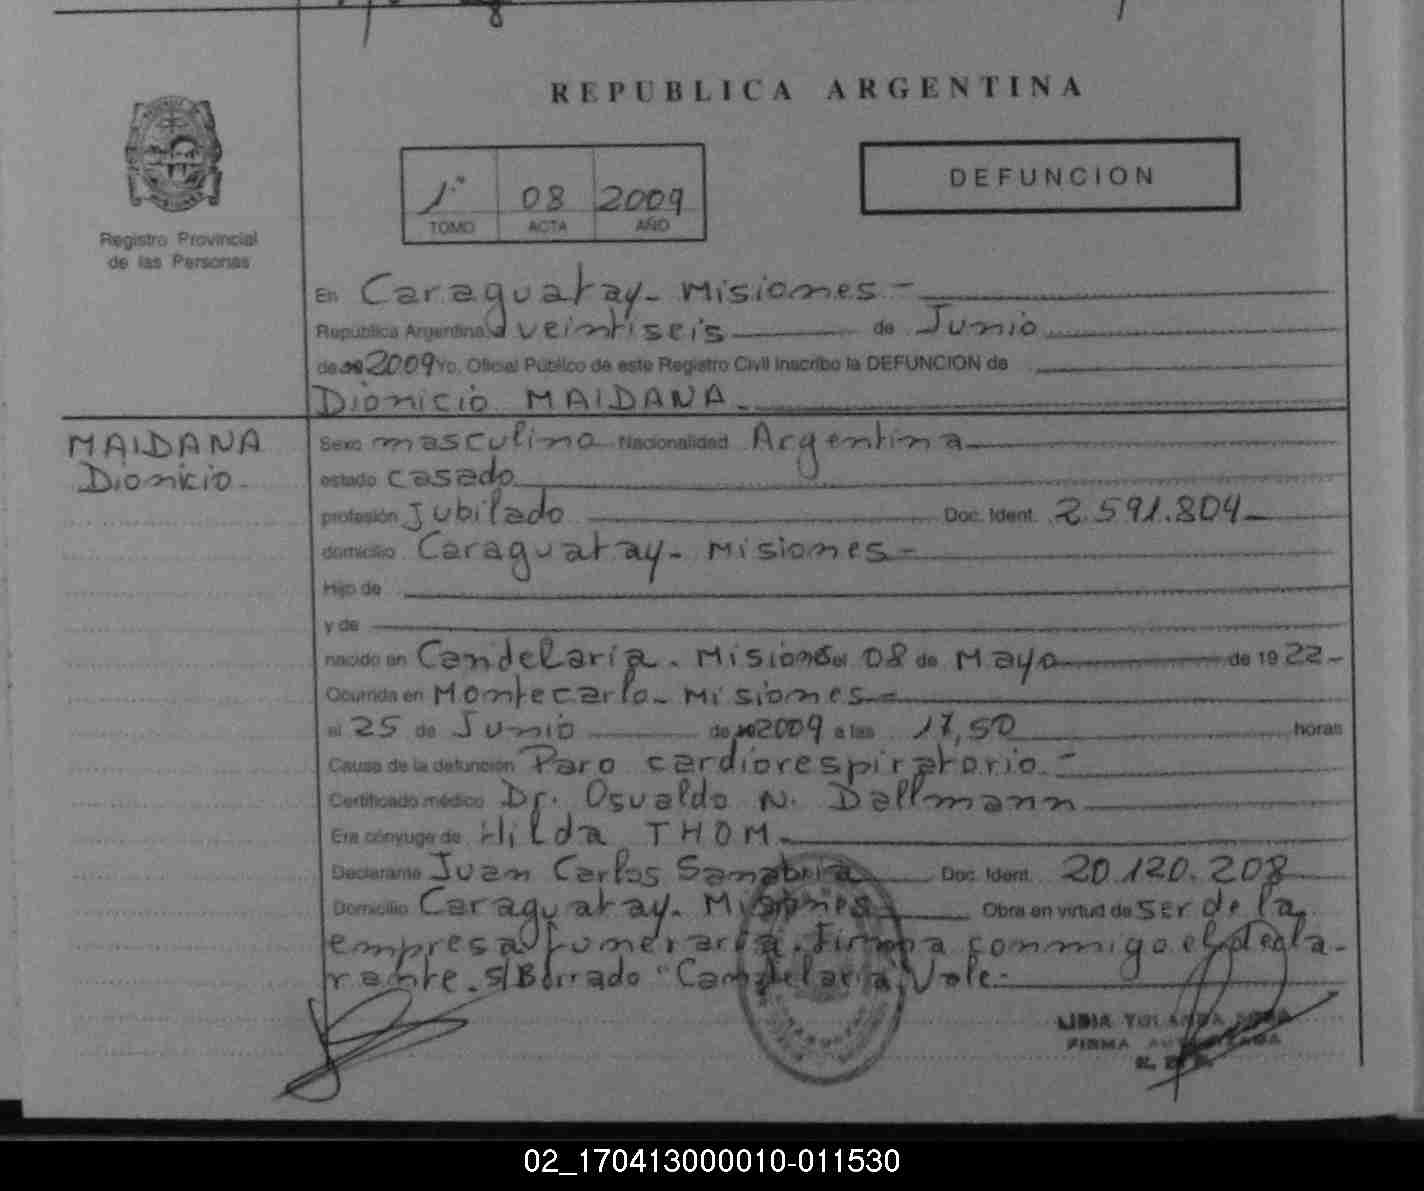 REPUBLICA ARGENTINA
1º 08 2009
TOMO ACTA AÑO
DEFUNCION
Registro Provincial
de las Personas
En Caraguatay - Misiones -
República Argentina, a veintiseis de Junio
de 2009 Yo, Oficial Público de este Registro Civil inscribo la DEFUNCION de
Dionicio MAIDANA -
MAIDANA
Dionicio -
Sexo masculino Nacionalidad Argentina
estado casado
profesión Jubilado Doc. Ident. 2.591.804
domicilio Caraguatay - Misiones -
Hijo de
y de
nacido en Candelaria - Misiones el 08 de Mayo de 1922 -
Ocurrida en Montecarlo - Misiones -
el 25 de Junio de 2009 a las 17,50 horas
Causa de la defunción Paro cardiorespiratorio -
Certificado médico Dr. Osvaldo N. Dallmann
Era cónyuge de Hilda THOM -
Declarante Juan Carlos Sanabria Doc. Ident. 20.120.208
Domicilio Caraguatay - Misiones Obra en virtud de ser de la
empresa funeraria. Firma conmigo el decla-
rante. s/Borrado "Candelaria" Vale -
LIDIA YOLANDA
FIRMA AUTORIZADA
02_170413000010-011530